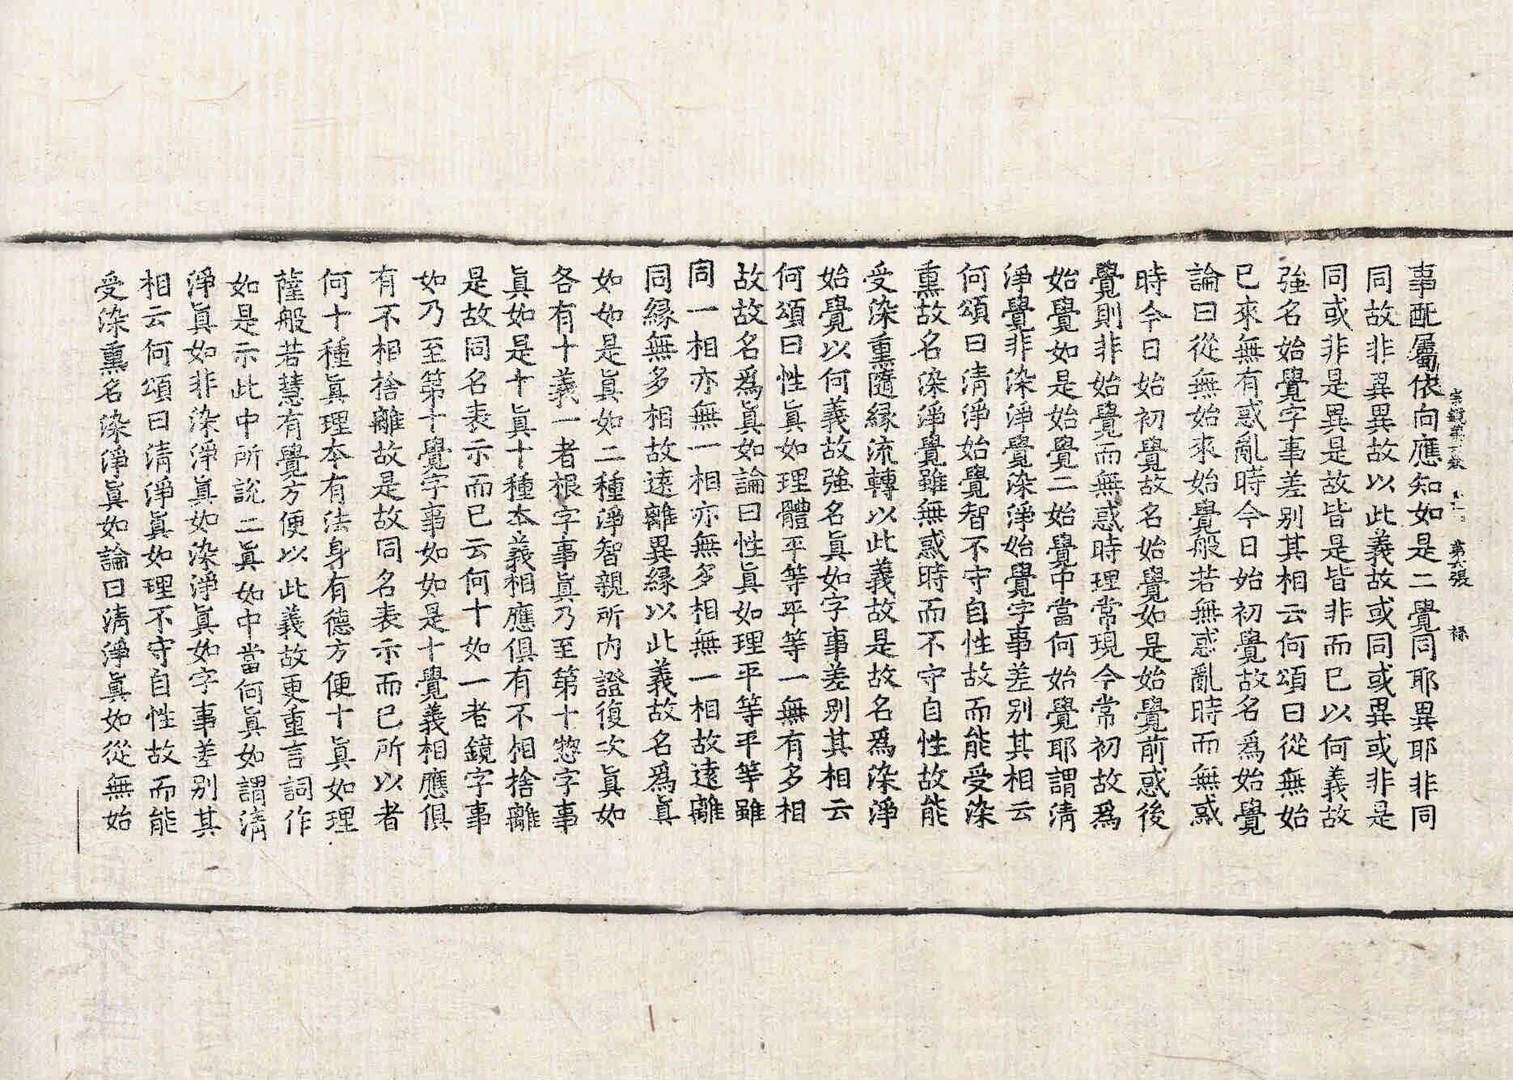 事配屬依向應知如是二覺同耶異耶非同
同故非異異故以此義故或同或異或非是
同或非是異是故皆是皆非而已以何義故
強名始覺字事差別其相云何頌曰從無始
已來無有惑亂時今日始初覺故名爲始覺
論曰從無始來始覺般若無惑亂時而無惑
時今日始初覺故名始覺如是始覺前惑後
覺則非始覺而無惑時理常現今常初故爲
始覺如是始覺二始覺中當何始覺耶謂清
淨覺非染淨覺染淨始覺字事差別其相云
何頌曰清淨始覺智不守自性故而能受染
熏故名染淨覺雖無惑時而不守自性故能
受染熏隨緣流轉以此義故是故名爲染淨
始覺以何義故強名眞如字事差別其相云
何頌曰性眞如理體平等平等一無有多相
故故名爲眞如論曰性眞如理平等平等雖
同一相亦無一相亦無多相無一相故遠離
同緣無多相故遠離異緣以此義故名爲眞
如如是眞如二種淨智親所內證復次眞如
各有十義一者根字事眞乃至第十惣字事
眞如是十眞十種本義相應俱有不相捨離
是故同名表示而已云何十如一者鏡字事
如乃至第十覺字事如如是十覺義相應俱
有不相捨離故是故同名表示而已所以者
何十種眞理本有法身有德方便十眞如理
薩般若慧有覺方便以此義故更重言詞作
如是示此中所說二眞如中當何眞如謂清
淨眞如非染淨眞如染淨眞如字事差別其
相云何頌曰清淨眞如理不守自性故而能
受染熏名染淨眞如論曰清淨眞如從無始